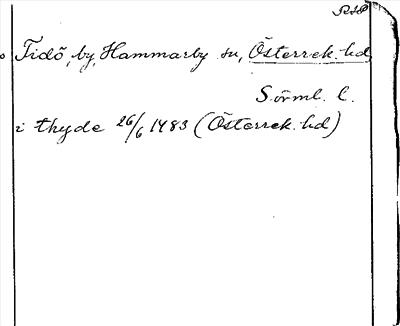 Tidö, by, Hammarby sn, Österrek. hd
Sörml. l.
i thyde 26/6 1483 (Österrek. hd)